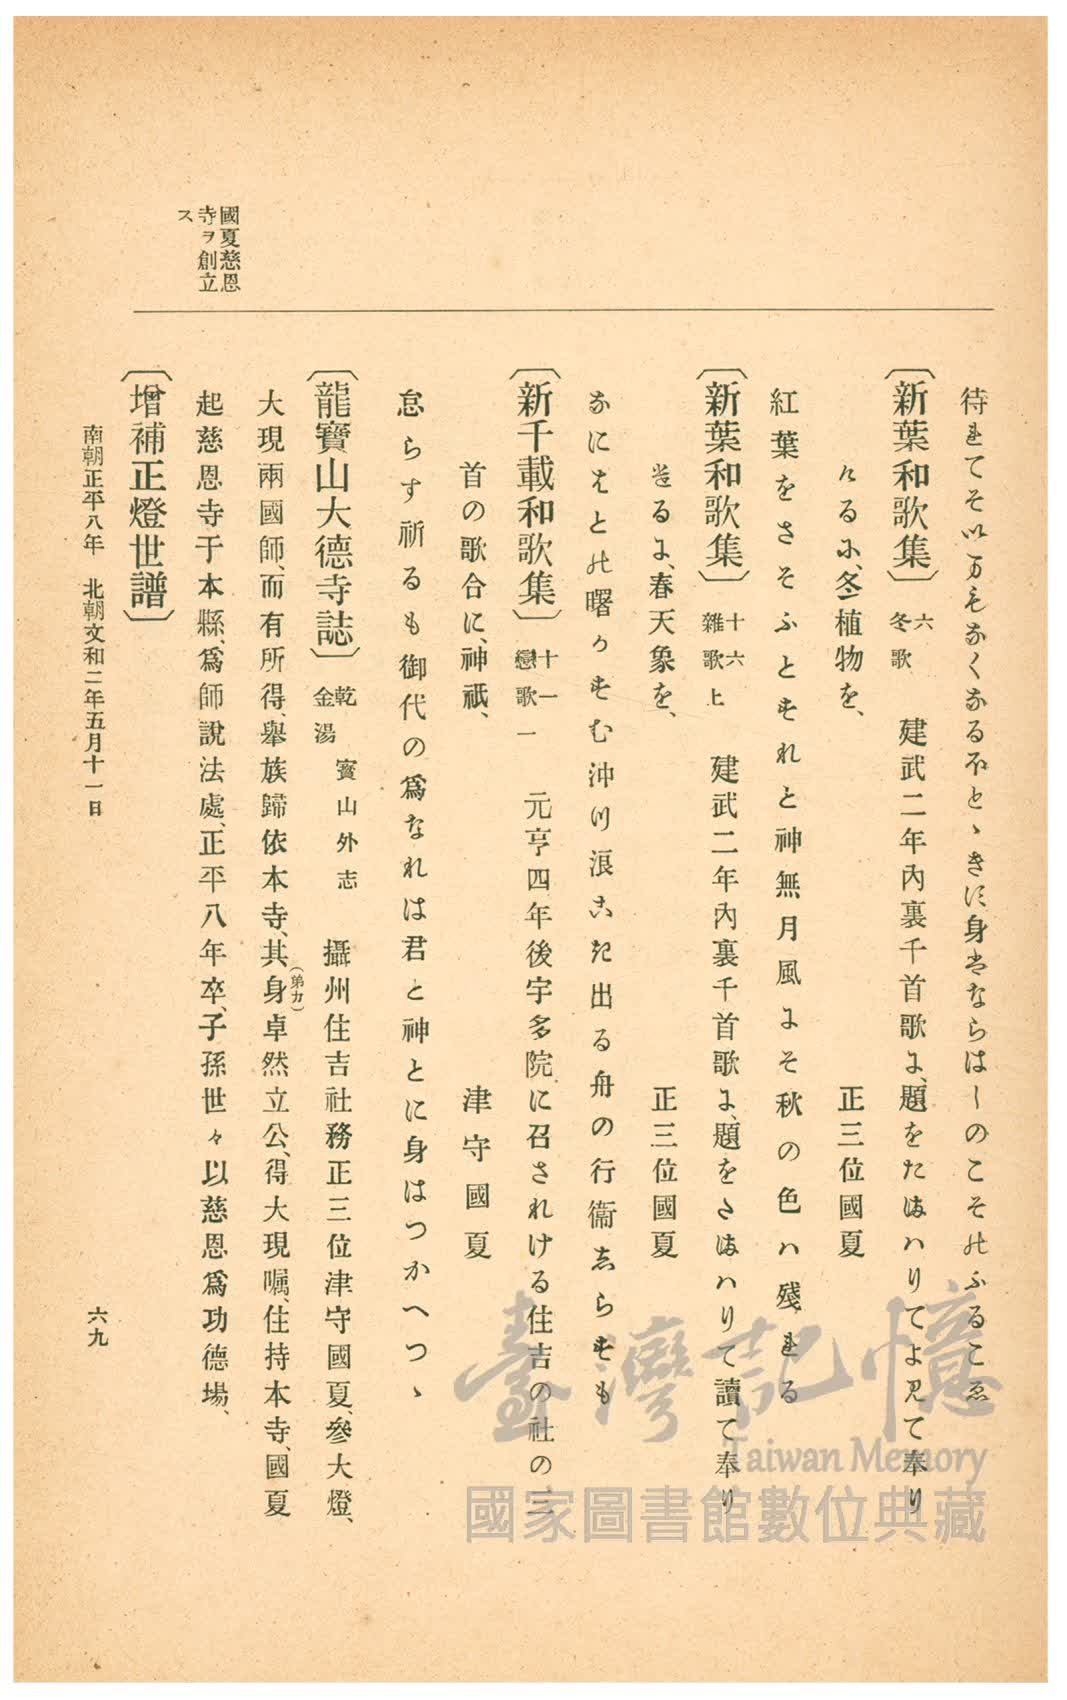 國夏慈恩
寺ヲ創立
ス
待れてそいつもなくなるほとゝきに身もならはしのこその ふるこゑ
〔新葉和歌集〕六冬歌 建武二年內裏千首歌に、題をたまハりてよみて奉り
ける に、冬植物を、 正三位國夏
紅葉をさそふとすれと神無月風にそ秋の色ハ殘れる
〔新葉和歌集〕十六雜歌上 建武二年內裏千首歌に、題をたまハりて讀て奉り
ける に、春天象を、 正三位國夏
なにはとの曙かすむ沖つ浪こき出る舟の行衞しらすも
〔新千載和歌集〕十一戀歌一 元亨四年後宇多院に召されける住吉の社の三
首の歌合に、神祇、 津守國夏
怠らす祈るも御代の爲なれは君と神とに身はつかへつゝ
〔龍寶山大德寺誌〕乾金湯 寳山外志 攝州住吉社務正三位津守國夏、參大燈、
大現兩國師、而有所得、舉族歸依本寺、其身(弟カ)卓然立公、得大現囑、住持本寺、國夏
起慈恩寺于本縣、爲師說法處、正平八年卒、子孫世々以慈恩爲功德場、
〔增補正燈世譜〕
南朝正平八年 北朝文和二年五月十一日
六九
臺灣記憶
Taiwan Memory
國家圖書館數位典藏